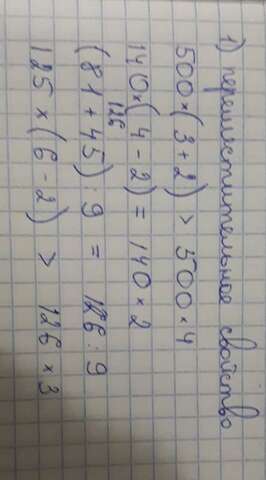 1) переместительное свойство
500×(3+2) > 500×4
140×(4-2) = 140×2
126
(81+45) : 9 = 126 : 9
125 × (6-2) > 126 × 3